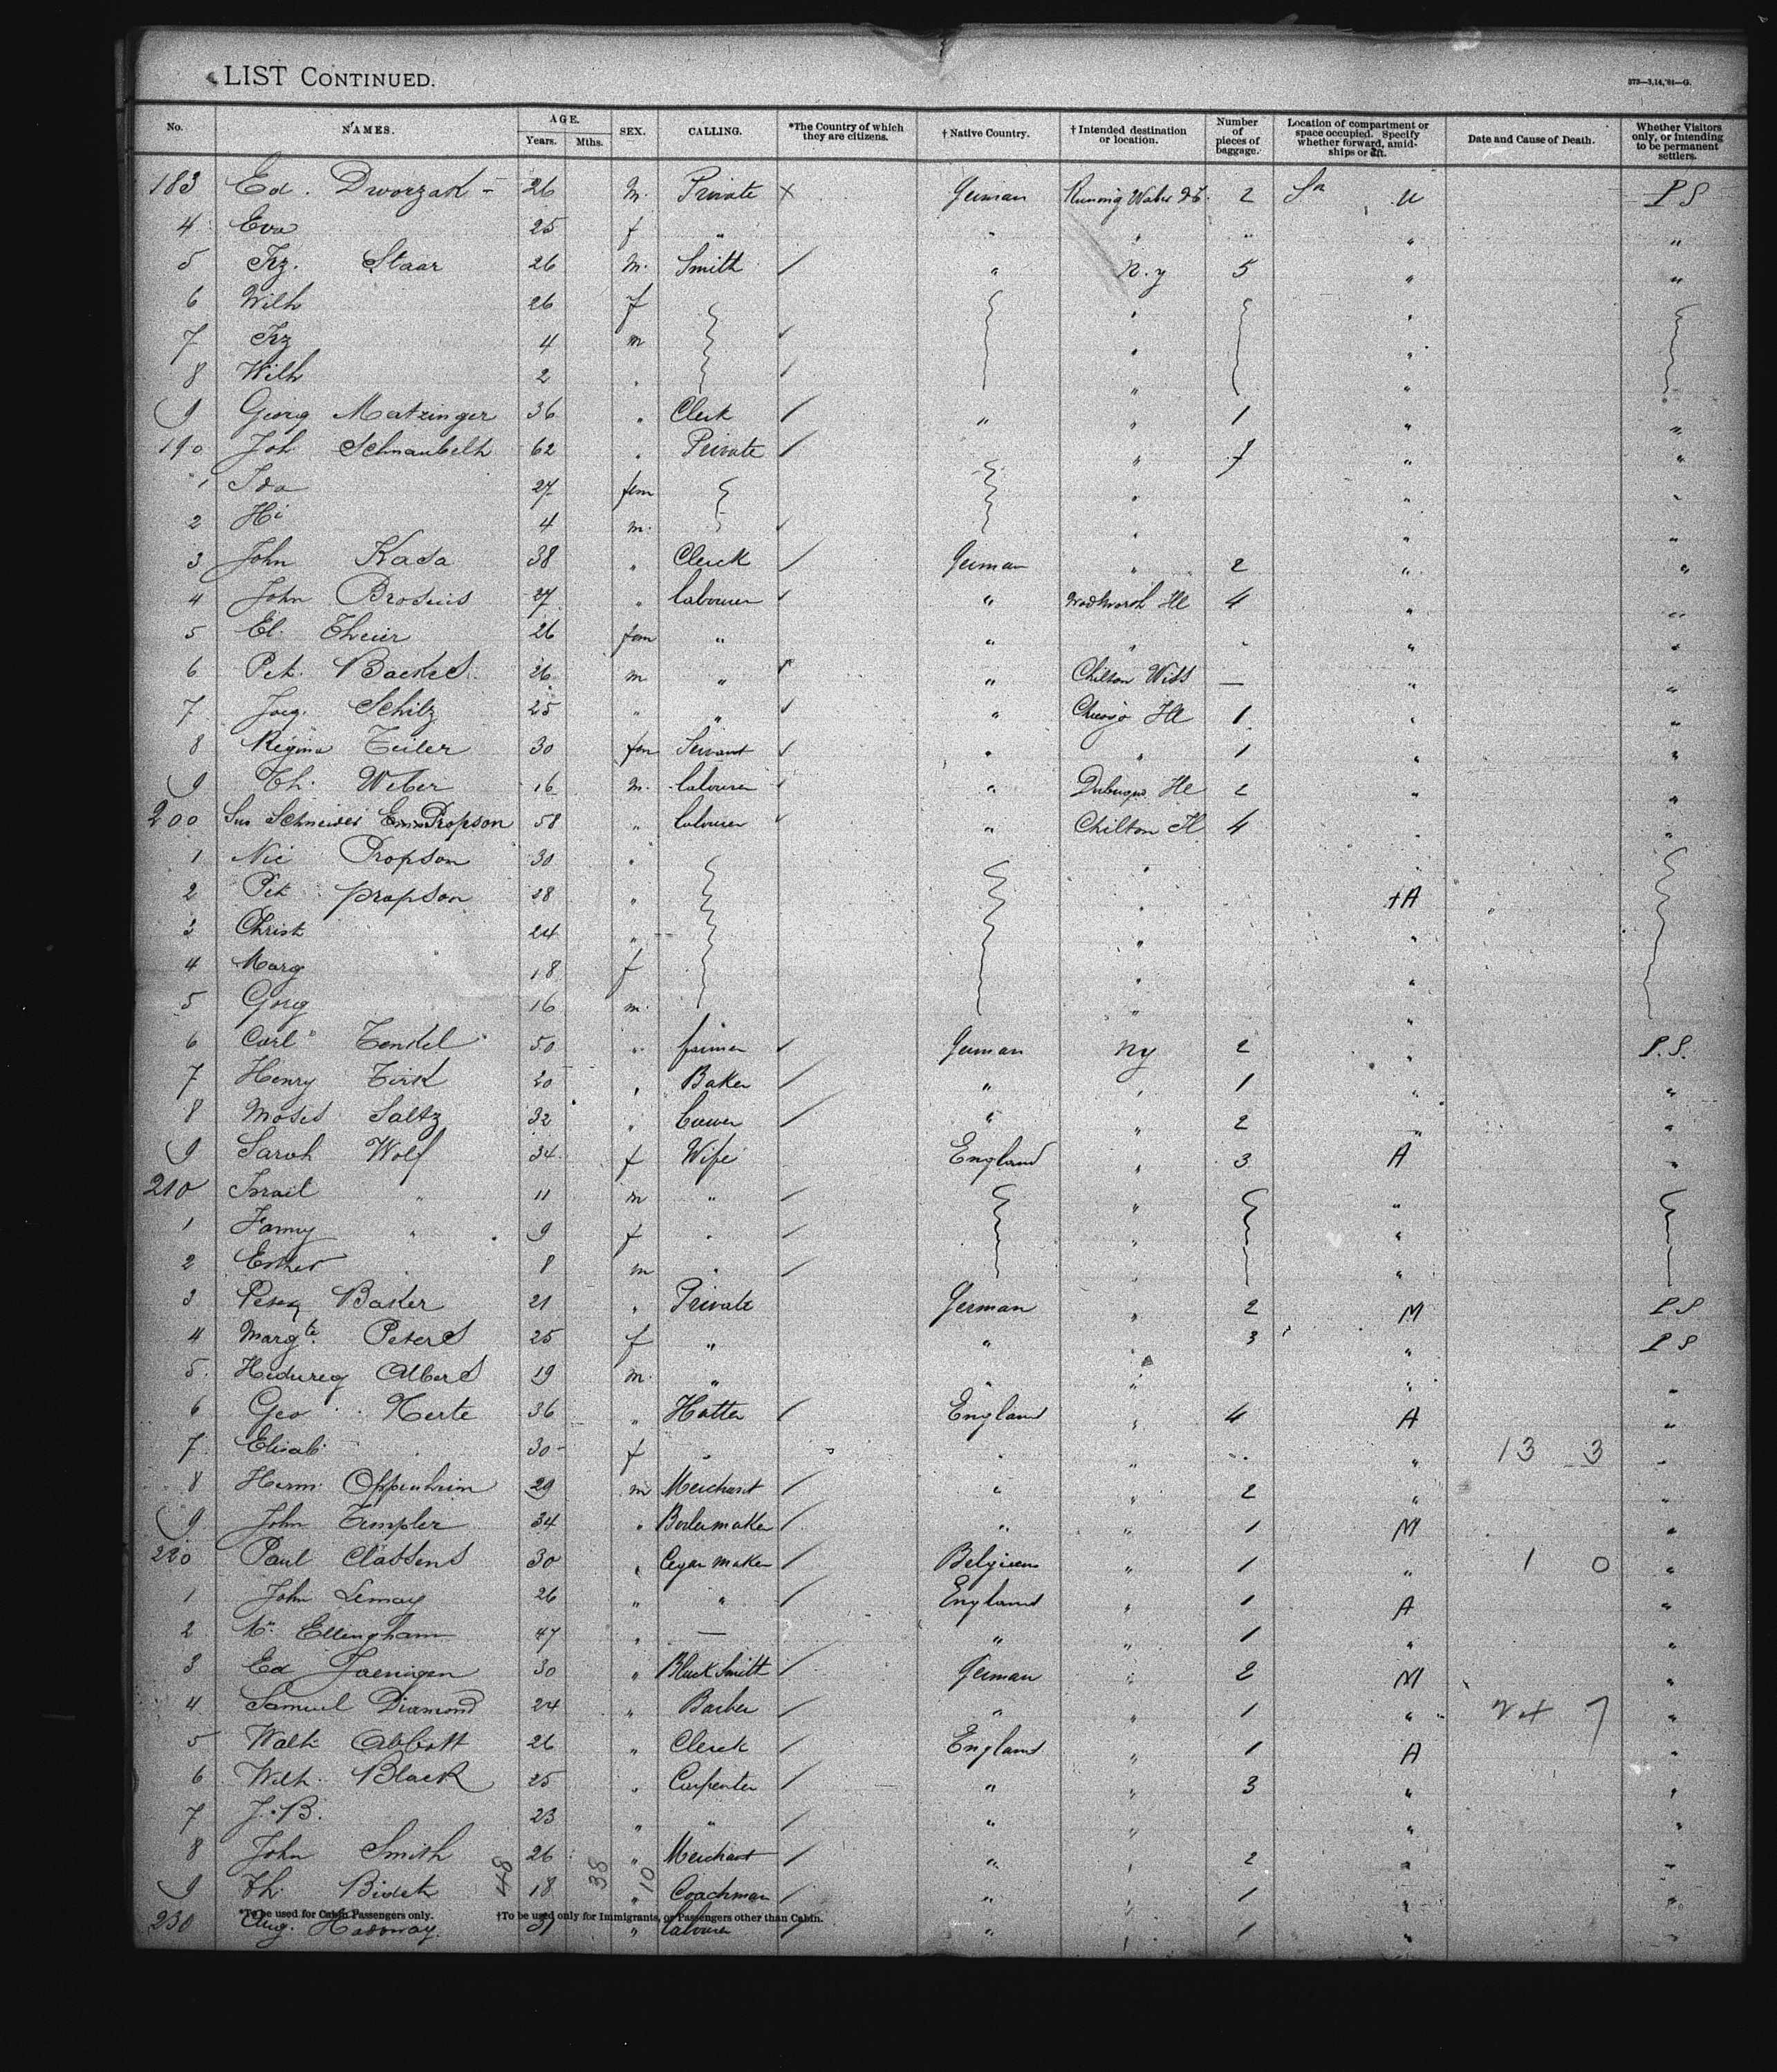 LIST CONTINUED.
373—3,14,'91—G.
No. NAMES. AGE. Years. Mths. SEX. CALLING. *The Country of which they are citizens. † Native Country. † Intended destination or location. Number of pieces of baggage. Location of compartment or space occupied. Specify whether forward, amidships or aft. Date and Cause of Death. Whether Visitors only, or intending to be permanent settlers.
183 Ed. Dworzak - 26 M. Private X German Running Water 2 U P S
4 Eva 25 f " " " " " "
5 Frz. Staar 26 M. Smith / " N.Y 5 " "
6 Wilh 26 f " "
7 Frz 4 m " "
8 Wilh 2 " " "
9 Georg Matzinger 36 " Clerk / " " 1 " "
190 Joh Schnaubelth 62 " Private / " 7 " "
1 Ida 27 fem " " "
2 Hi 4 m. " " "
3 John Kasa 38 " Clerck / German " 2 " "
4 John Brosius 27 " labourer " Ill 4 " "
5 El. Theier 26 fem " " " " " "
6 Pet. Backes 26 m " " Chilton Wiss — " "
7 Joeg. Schilz 25 " " " Chicago Ill 1 " "
8 Regina Teiler 30 fem Servant " " 1 " "
9 Th. Weber 16 m. labourer " Dubuque Ill 2 " "
200 Schneider Propson 58 " labourer " Chilton Il 4 " "
1 Nic Propson 30 " " "
2 Pet propson 28 " " +A
3 Christ 24 " " "
4 Marg 18 f " "
5 Georg 16 m. " "
6 Carl Tenkel 50 " farmer German NY 2 " P.S.
7 Henry Tirk 20 " Baker / " " 1 " "
8 Moses Saltz 32 " / " " 2 " "
9 Sarah Wolf 34 f Wife England " 3 A "
210 Israil " 11 m " / " "
1 Fanny " 9 f " / " "
2 Esther 8 m " / " "
3 Baker 21 " Private German " 2 M P S
4 Margte. Peters 25 f " " " 3 " P S
5 Albers 19 m. " " " " "
6 Geo Herte 36 " Hatter / England " 4 A "
7 Elisab. 30 f " " " " " 13 3 "
8 Herm. Oppenheim 29 m Merchant / " " 2 " "
9 John Templer 34 " Boilermaker / " " 1 M "
220 Paul Classens 30 " Cegar maker / Belgium " 1 " 1 0 "
1 John Lemay 26 " " / England " 1 A "
2 Ellingham 47 " — " " 1 " "
3 Ed Joeningen 30 " BlackSmith / German " 2 M "
4 Samuel Diamond 24 " Barber / " " 1 " 7 "
5 Walt. Abbott 26 " Clerck / England " 1 A "
6 Wilh. Black 25 " Carpenter / " " 3 " "
7 J. B. 23 " " / " " " "
8 John Smith 26 " Merchant / " " 2 " "
9 Th. 18 " Coachman / " " 1 " "
48 38 10
*To be used for Cabin Passengers only. †To be used only for Immigrants, or Passengers other than Cabin.
230 Aug. " labourer / " " 1 " "